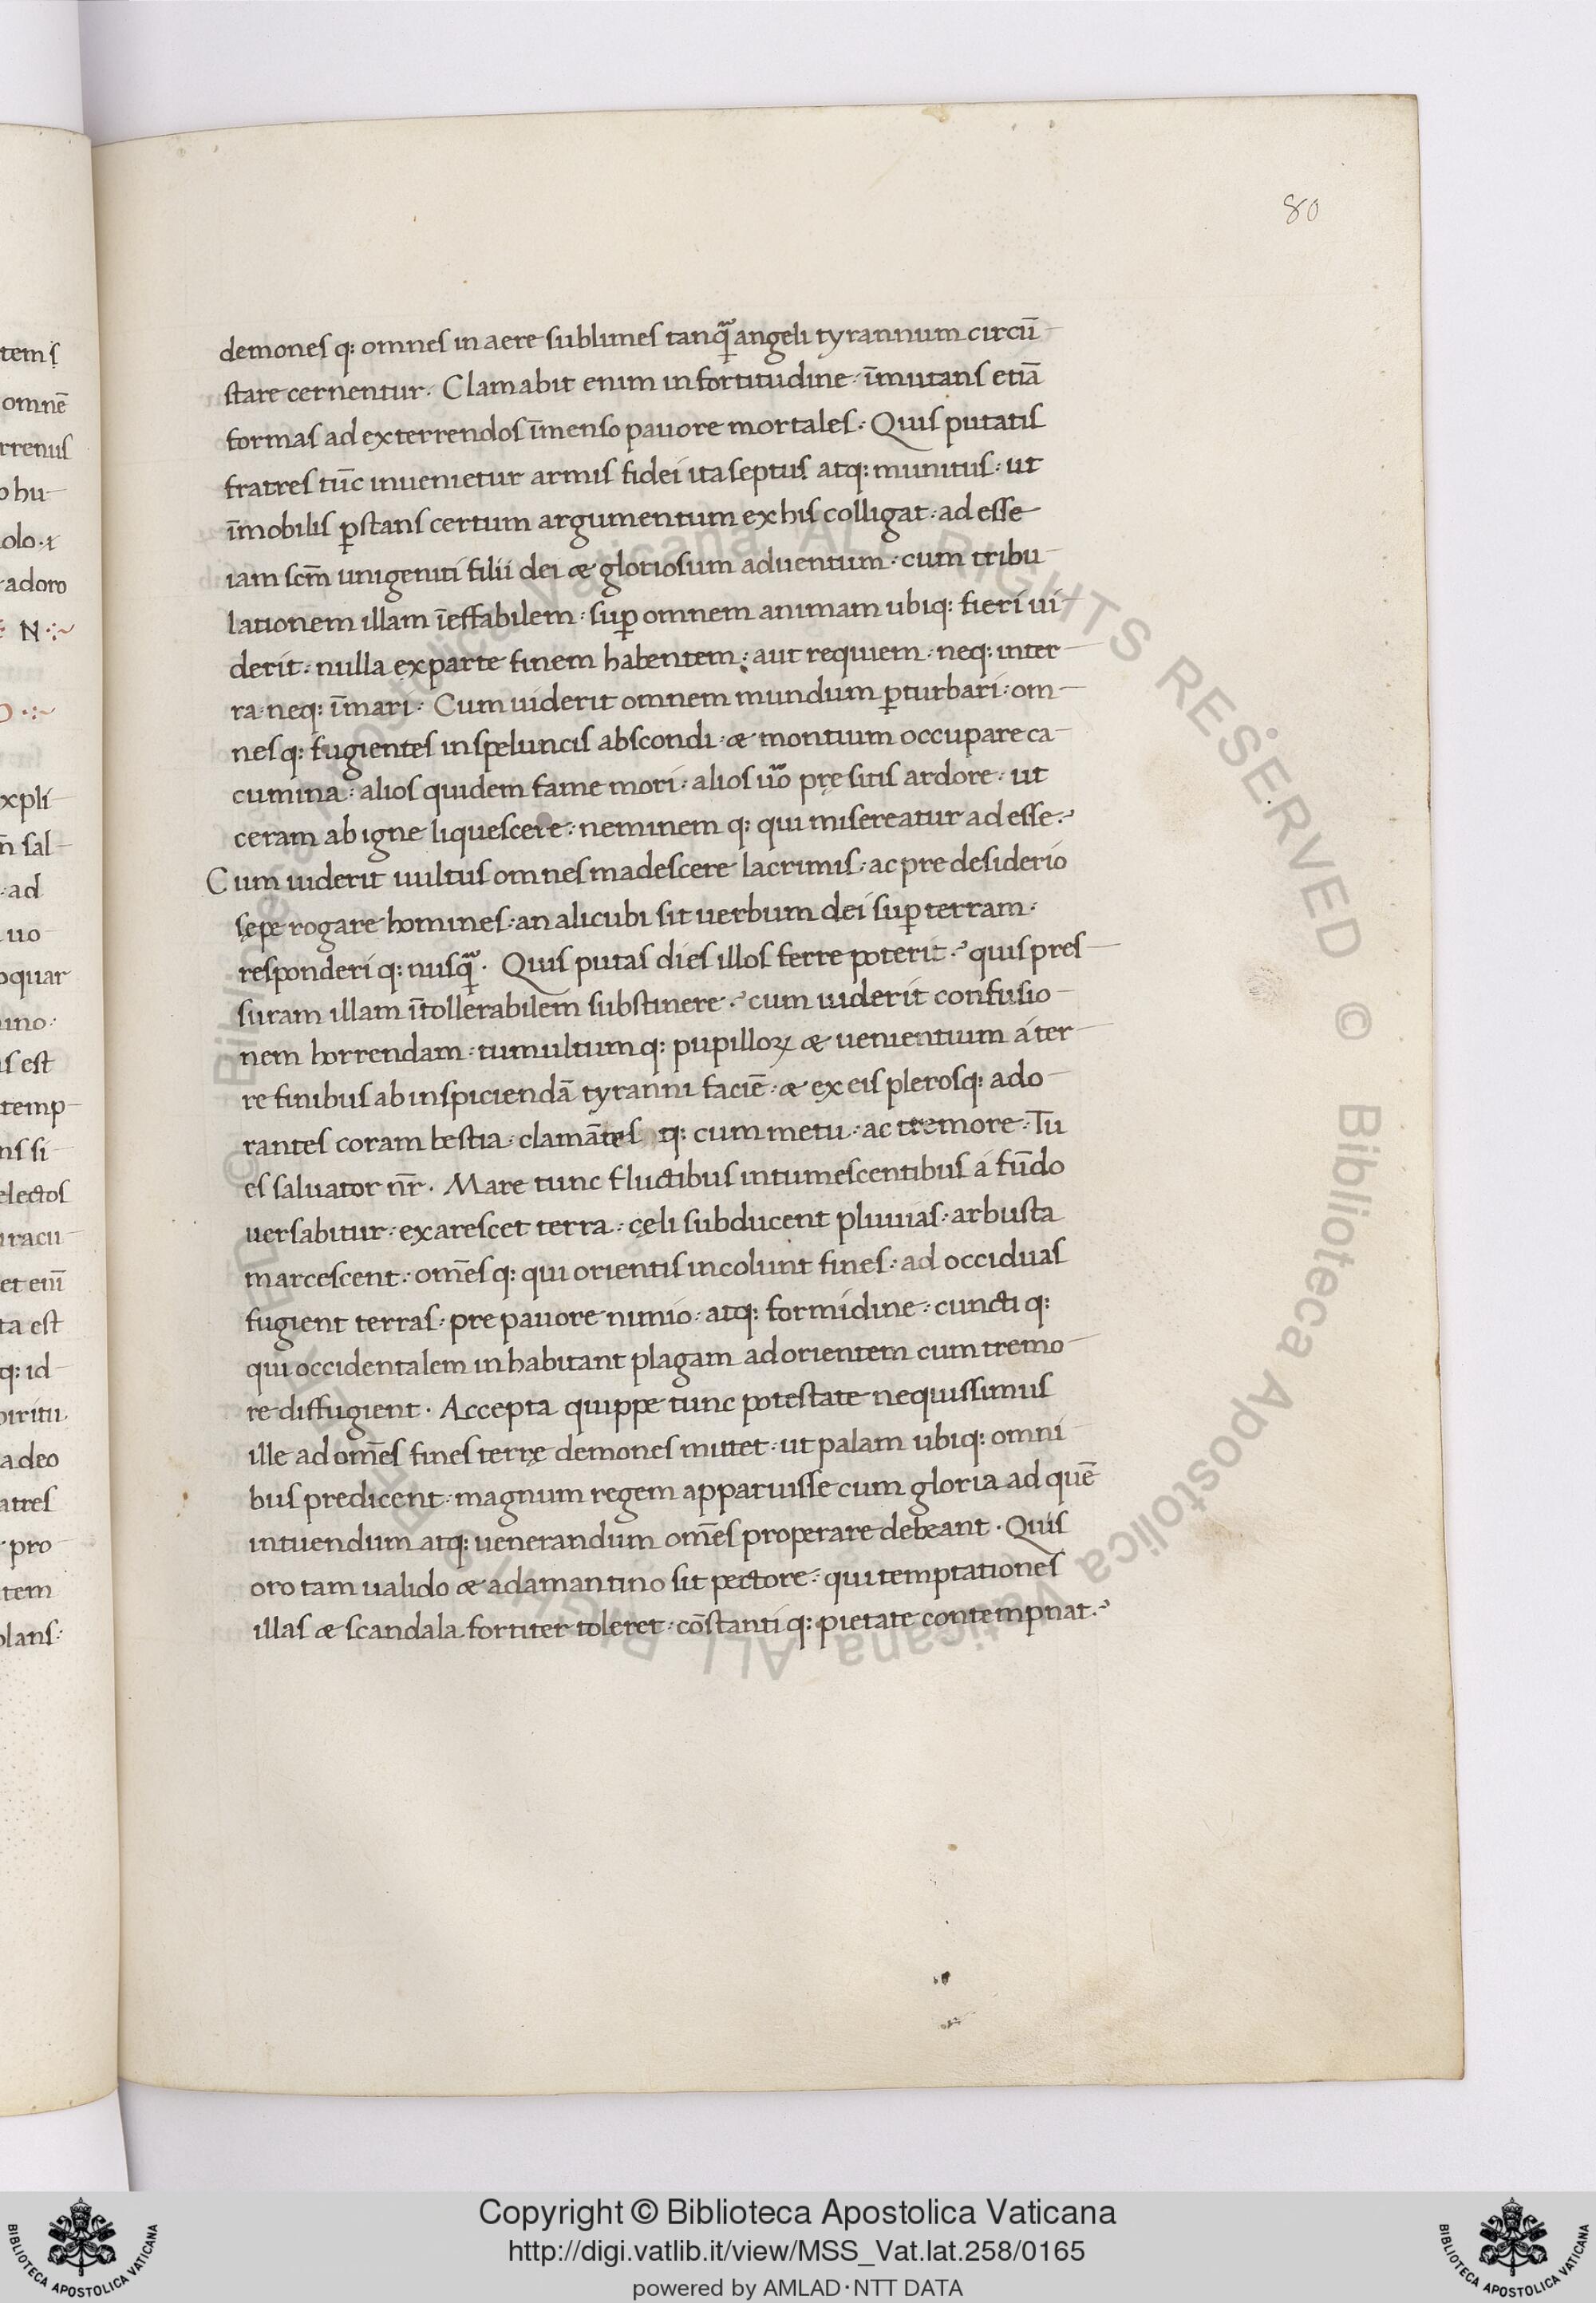 80
demones q: omnes in aere sublimes tanq̃ angeli tyrannum circū
stare cernentur. Clamabit enim in fortitudine: īmutans etiā
formas ad exterrendos īmenso pauore mortales: Quis putatis
fratres tūc inuenietur armis fidei ita septus atq: munitus: ut
īmobilis ꝑstans certum argumentum ex his colligat: ad esse
iam scm̄ unigeniti filii dei æ gloriosum aduentum: cum tribu
lationem illam īeffabilem: suꝑ omnem animam ubiq: fieri ui
derit: nulla ex parte finem habentem: aut requiem: neq: inter
ra: neq: īmari: Cum uiderit omnem mundum ꝑturbari: om
nes q: fugientes in speluncis abscondi: æ montium occupare ca
cumina: alios quidem fame mori: alios uo̅ prę sitis ardore: ut
ceram ab igne liquescere: neminem q: qui misereatur ad esse:
Cum uiderit uultus omnes madescere lacrimis: ac pre desiderio
sępe rogare homines: an alicubi sit uerbum dei suꝑ terram:
responderi q: nusq̃. Quis putas dies illos ferre poterit? quis pres
suram illam ītollerabilem substinere? cum uiderit confusio
nem horrendam: tumultum q: pupilloꝝ æ uenientium á ter
re finibus ab inspiciendā tyranni faciē: æ ex eis plerosq: ado
rantes coram bestia: clamātes q: cum metu: ac tremore: Tu
es saluator nr̄. Mare tunc fluctibus intumescentibus á fūdo
uersabitur: exarescet terra: cęli subducent pluuias: arbusta
marcescent: omēs q: qui orientis incolunt fines: ad occiduas
fugient terras: pre pauore nimio: atq: formidine: cuncti q:
qui occidentalem inhabitant plagam ad orientem cum tremo
re diffugient. Accepta quippe tunc potestate nequissimus
ille ad omēs fines terrę demones mittet: ut palam ubiq: omni
bus predicent: magnum regem apparuisse cum gloria ad quē
intuendum atq: uenerandum omēs properare debeant. Quis
oro tam ualido æ adamantino sit pectore: qui temptationes
illas æ scandala fortiter toleret: cōstanti q: pietate contempnat?
tem
omnē
rrenus
o hu
olo: &
adoro
N
xpli
n̄ sal
ad
uo
oquar
ino:
is est
temp
ns si
electos
iracu
et eni̅
ta est
q: id
piritu
adeo
atres
pro
tem
olans:
© Biblioteca Apostolica Vaticana ALL RIGHTS RESERVED © Biblioteca Apostolica Vaticana ALL RIGHTS RESERVED
Copyright © Biblioteca Apostolica Vaticana
http://digi.vatlib.it/view/MSS_Vat.lat.258/0165
powered by AMLAD·NTT DATA
BIBLIOTECA APOSTOLICA VATICANA
BIBLIOTECA APOSTOLICA VATICANA